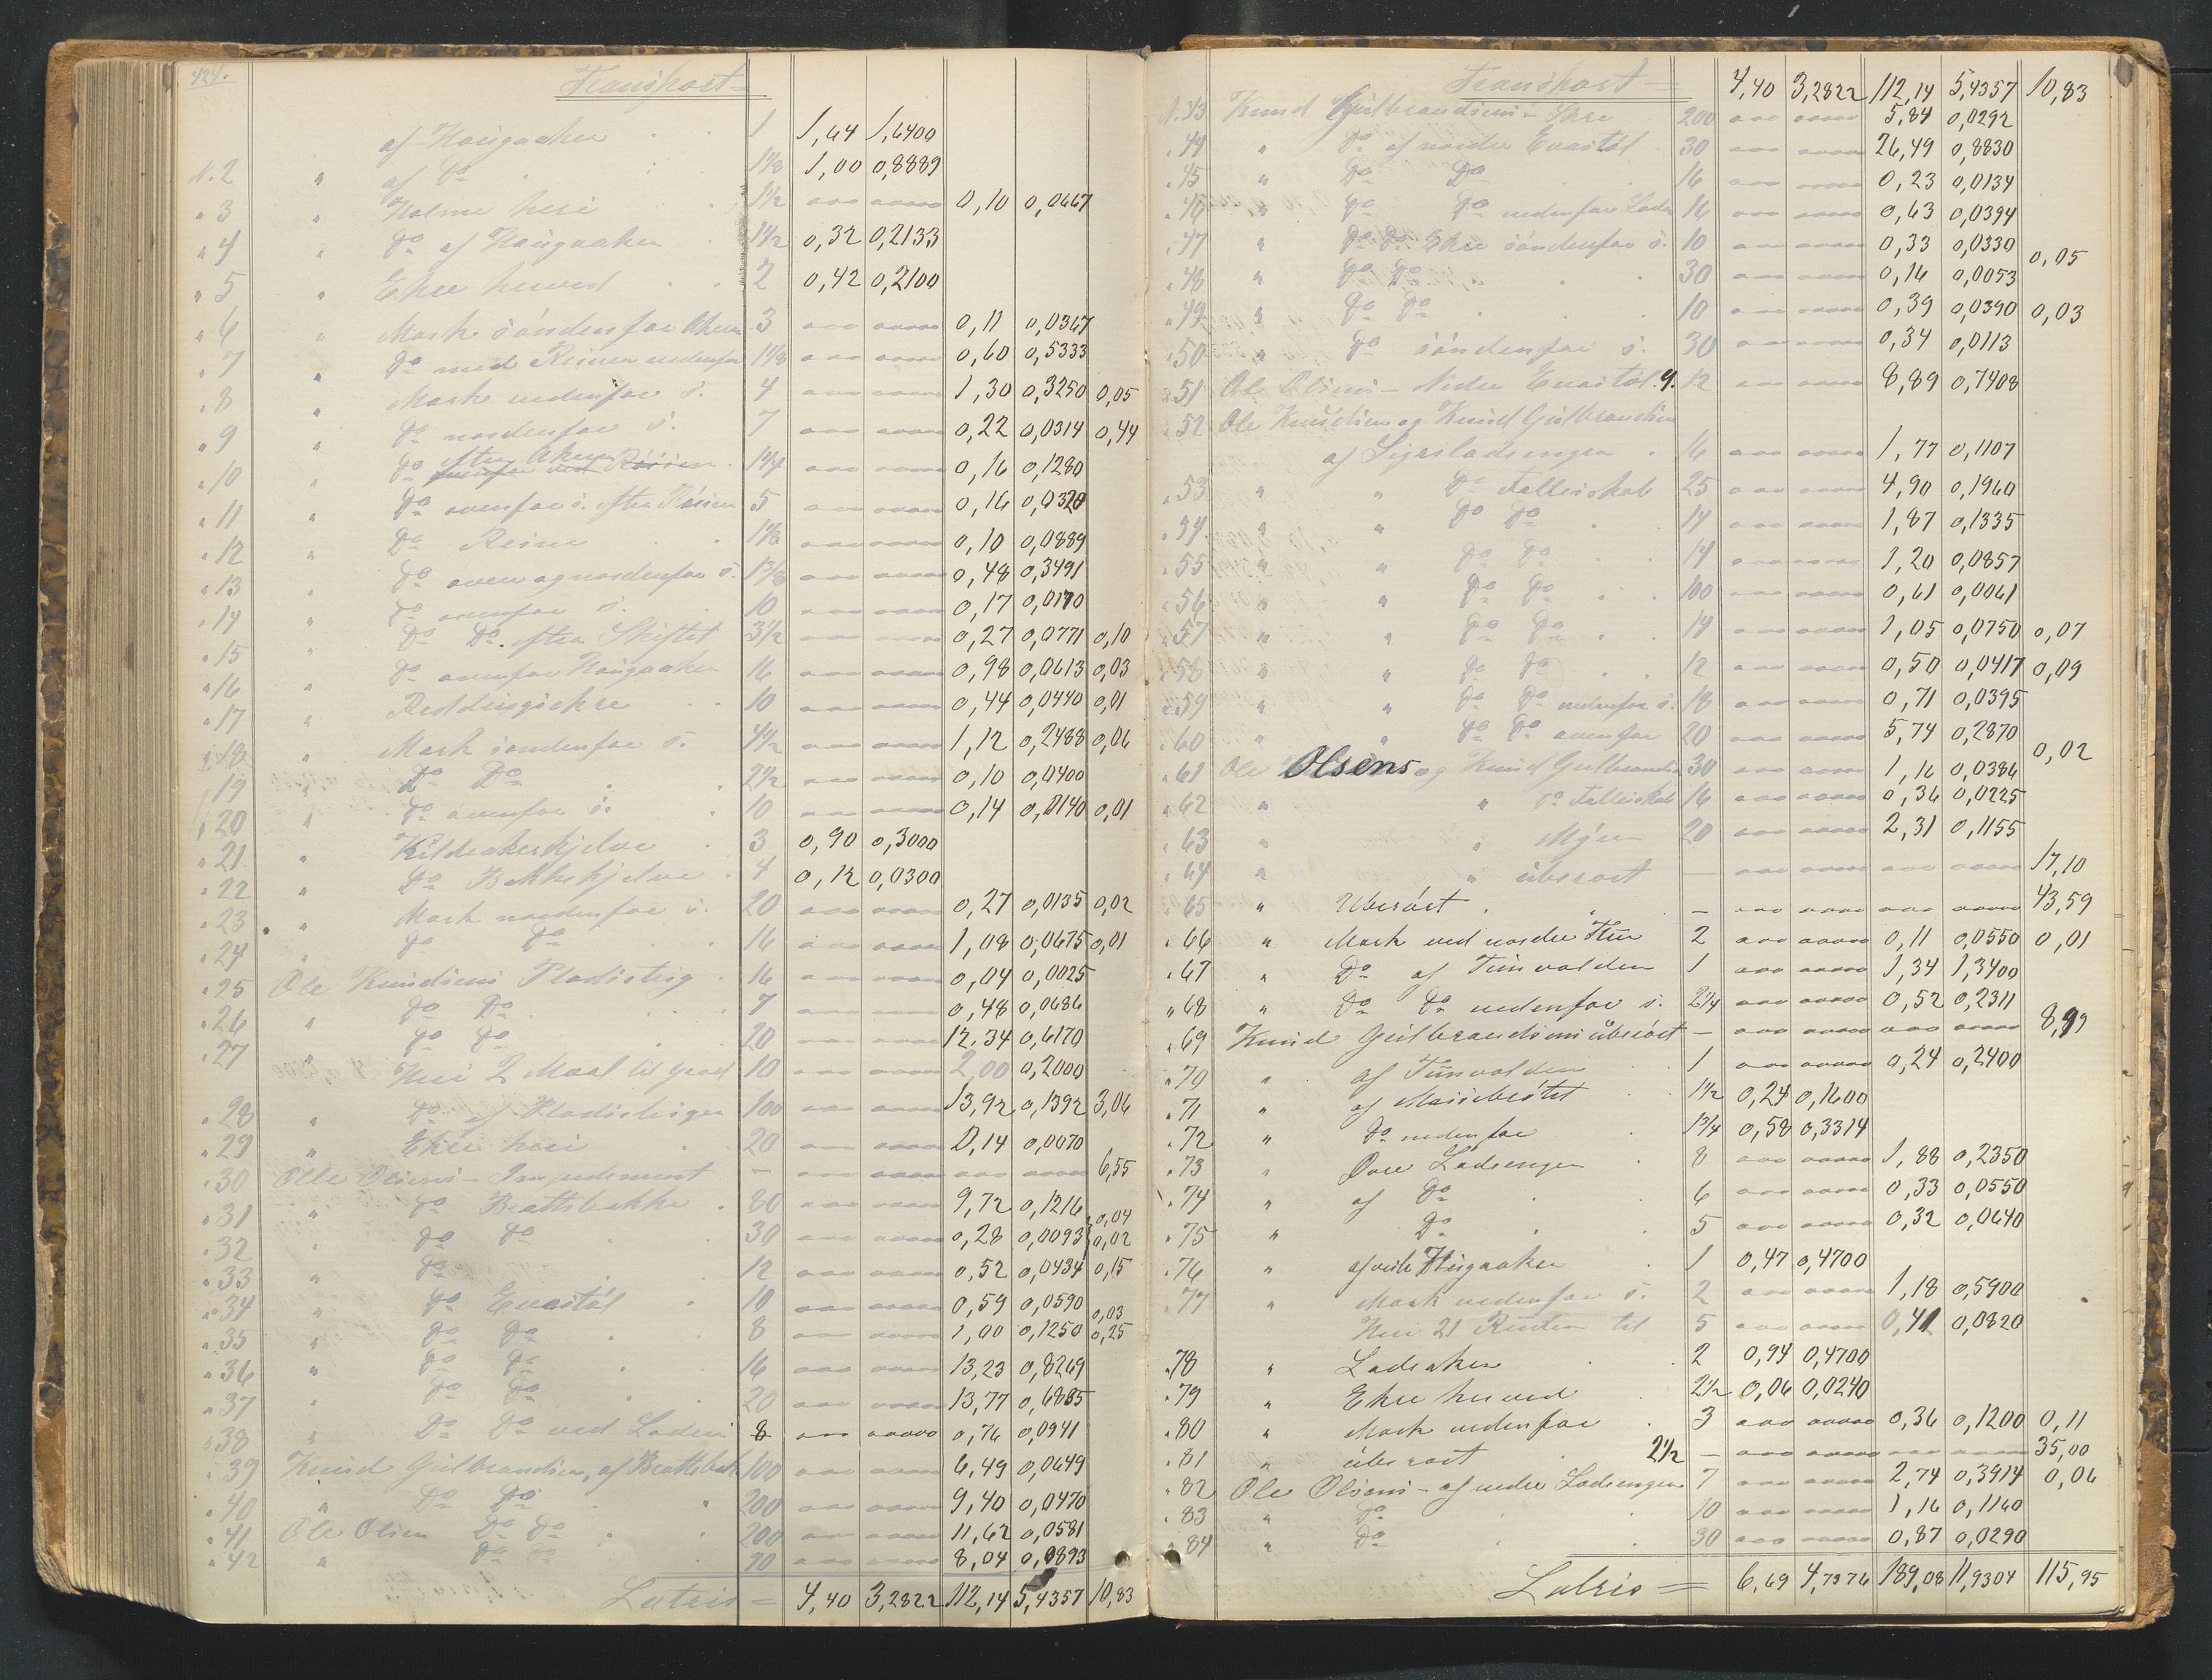 424.
Transport =
af Haugaaker . . 1 1,64 1,6400
N. 2 " af Do . . 1 1/8 1,00 0,8889
" 3 " Holme heri . 1 1/2 0,10 0,0667
" 4 " Do af Haugaaker . 1 1/2 0,32 0,2133
" 5 " Ekre herved . . 2 0,42 0,2100
" 6 " Mark söndenfor Akeren 3 0,11 0,0367
" 7 " Do med Reiner nedenfor 1 1/8 0,60 0,5333
" 8 " Mark nedenfor s. 4 1,30 0,3250 0,05
" 9 " Do nordenfor s. 7 0,22 0,0314 0,44
" 10 " Do efter Akeren . 1 1/4 0,16 0,1280
" 11 " Do ovenfor s. efter 5 0,16 0,0320
" 12 " Do Reine . 1 1/8 0,10 0,0889
" 13 " Do oven og nordenfor s. 1 3/8 0,48 0,3491
" 14 " Do ovenfor s. . 10 0,17 0,0170
" 15 " Do Do. efter Skiftet 3 1/2 0,27 0,0771 0,10
" 16 " Do ovenfor Haugaaker 16 0,98 0,0613 0,03
" 17 " Reddingsekre . . 10 0,44 0,0440 0,01
" 18 " Mark söndenfor s. 4 1/2 1,12 0,2488 0,06
" 19 " Do Do . . 2 1/2 0,10 0,0400
" 20 " Do ovenfor s. . 10 0,14 0,0140 0,01
" 21 " Kildeakerskjelve . 3 0,90 0,3000
" 22 " Do Bakkekjelve . 4 0,12 0,0300
" 23 " Mark nordenfor s. 20 0,27 0,0135 0,02
" 24 " Do Do . . 16 1,08 0,0675 0,01
" 25 Ole Knudsens Pladsteig . 16 0,04 0,0025
" 26 " Do Do . . . 7 0,48 0,0686
" 27 " Do Do . . 20 12,34 0,6170
" Heri 2 Maal til grad 10 2,00 0,2000
" 28 " Do af Pladsteigen 100 13,92 0,1392 3,06
" 29 " Ekre heri . 20 0,14 0,0070
" 30 Olle Olsens - Impediment — 6,55
" 31 " Do Brattebakke . 80 9,72 0,1216 0,04
" 32 " Do Do . 30 0,28 0,0093 0,02
" 33 " Do . 12 0,52 0,0434 0,15
" 34 " Do Evastöl . 10 0,59 0,0590 0,03
" 35 " Do Do . 8 1,00 0,1250 0,25
" 36 " Do Do . 16 13,23 0,8269
" 37 " Do Do . 20 13,77 0,6885
" 38 " Do Do ved Laden 8 0,76 0,0941
" 39 Knud Gulbrandsen, af Brattebak 100 6,49 0,0649
" 40 " Do Do . " 200 9,40 0,0470
" 41 Ole Olsen Do Do . . 200 11,62 0,0581
" 42 " Do " . 90 8,04 0,0893
Latris = 4,40 3,2822 112,14 5,4357 10,83
Transport = 4,40 3,2822 112,14 5,4357 10,83
N. 43 Knud Gulbrandsens - Skre 200 5,84 0,0292
" 44 " Do af nordre Evastöl . 30 26,49 0,8830
" 45 " Do Do . . 16 0,23 0,0134
" 46 " Do Do nedenfor Laden 16 0,63 0,0394
" 47 " Do Do Ekre söndenfor s. 10 0,33 0,0330 0,05
" 48 " Do Do . . 30 0,16 0,0053
" 49 " Do Do . . . 10 0,39 0,0390 0,03
" 50 " Do söndenfor s. 30 0,34 0,0113
" 51 Ole Olsens - Neder Evastöl. 9. 12 8,89 0,7408
" 52 Ole Knudsen og Knud Gulbrandsen
af Sigrisladsengen . 16 1,77 0,1107
" 53 " " Do Fælleskab 25 4,90 0,1960
" 54 " " Do Do . 14 1,87 0,1335
" 55 " " Do Do . . 14 1,20 0,0857
" 56 " " Do Do . . 100 0,61 0,0061
" 57 " " Do Do . . 14 1,05 0,0750 0,07
" 58 " " Do Do . . 12 0,50 0,0417 0,09
" 59 " " Do Do nedenfor s. 18 0,71 0,0395
" 60 " " Do Do ovenfor 20 5,74 0,2870
" 61 Ole Olsens og Knud Gulbrandsen 30 1,16 0,0386 0,02
" 62 " " Do Fælleskab 16 0,36 0,0225
" 63 " " Myren 20 2,31 0,1155
" 64 " " überört — 17,10
" 65 " Uberört . . — 43,59
" 66 " Mark ved nordre Hus 2 0,11 0,0550 0,01
" 67 " Do af Tunvolden 1 1,34 1,3400
" 68 " Do Do nedenfor s. 2 1/4 0,52 0,2311
" 69 Knud Gulbrandsens überört — 8,99
" 70 " af Tunvolden . 1 0,24 0,2400
" 71 " af . . 1 1/2 0,24 0,1600
" 72 " Do nedenfor . 1 3/4 0,58 0,3314
" 73 " Övre Ladsengen . 8 1,88 0,2350
" 74 " af Do . 6 0,33 0,0550
" 75 " Do . 5 0,32 0,0640
" 76 " af vestle Haugaaker . 1 0,47 0,4700
" 77 " Mark nedenfor s. 2 1,18 0,5900
Heri 21 Ruten til 5 0,41 0,0820
" 78 " Ladeaker . . 2 0,94 0,4700
" 79 " Ekre herved . 2 1/2 0,06 0,0240
" 80 " Mark nedenfor . 3 0,36 0,1200 0,11
" 81 " überört . 2 1/2 — 35,00
" 82 Ole Olsens - af nedre Ladsengen 7 2,74 0,3914 0,06
" 83 " Do . . 10 1,16 0,1160
" 84 " Do . . 30 0,87 0,0290
Latris = 6,69 4,7376 189,08 11,9304 115,95